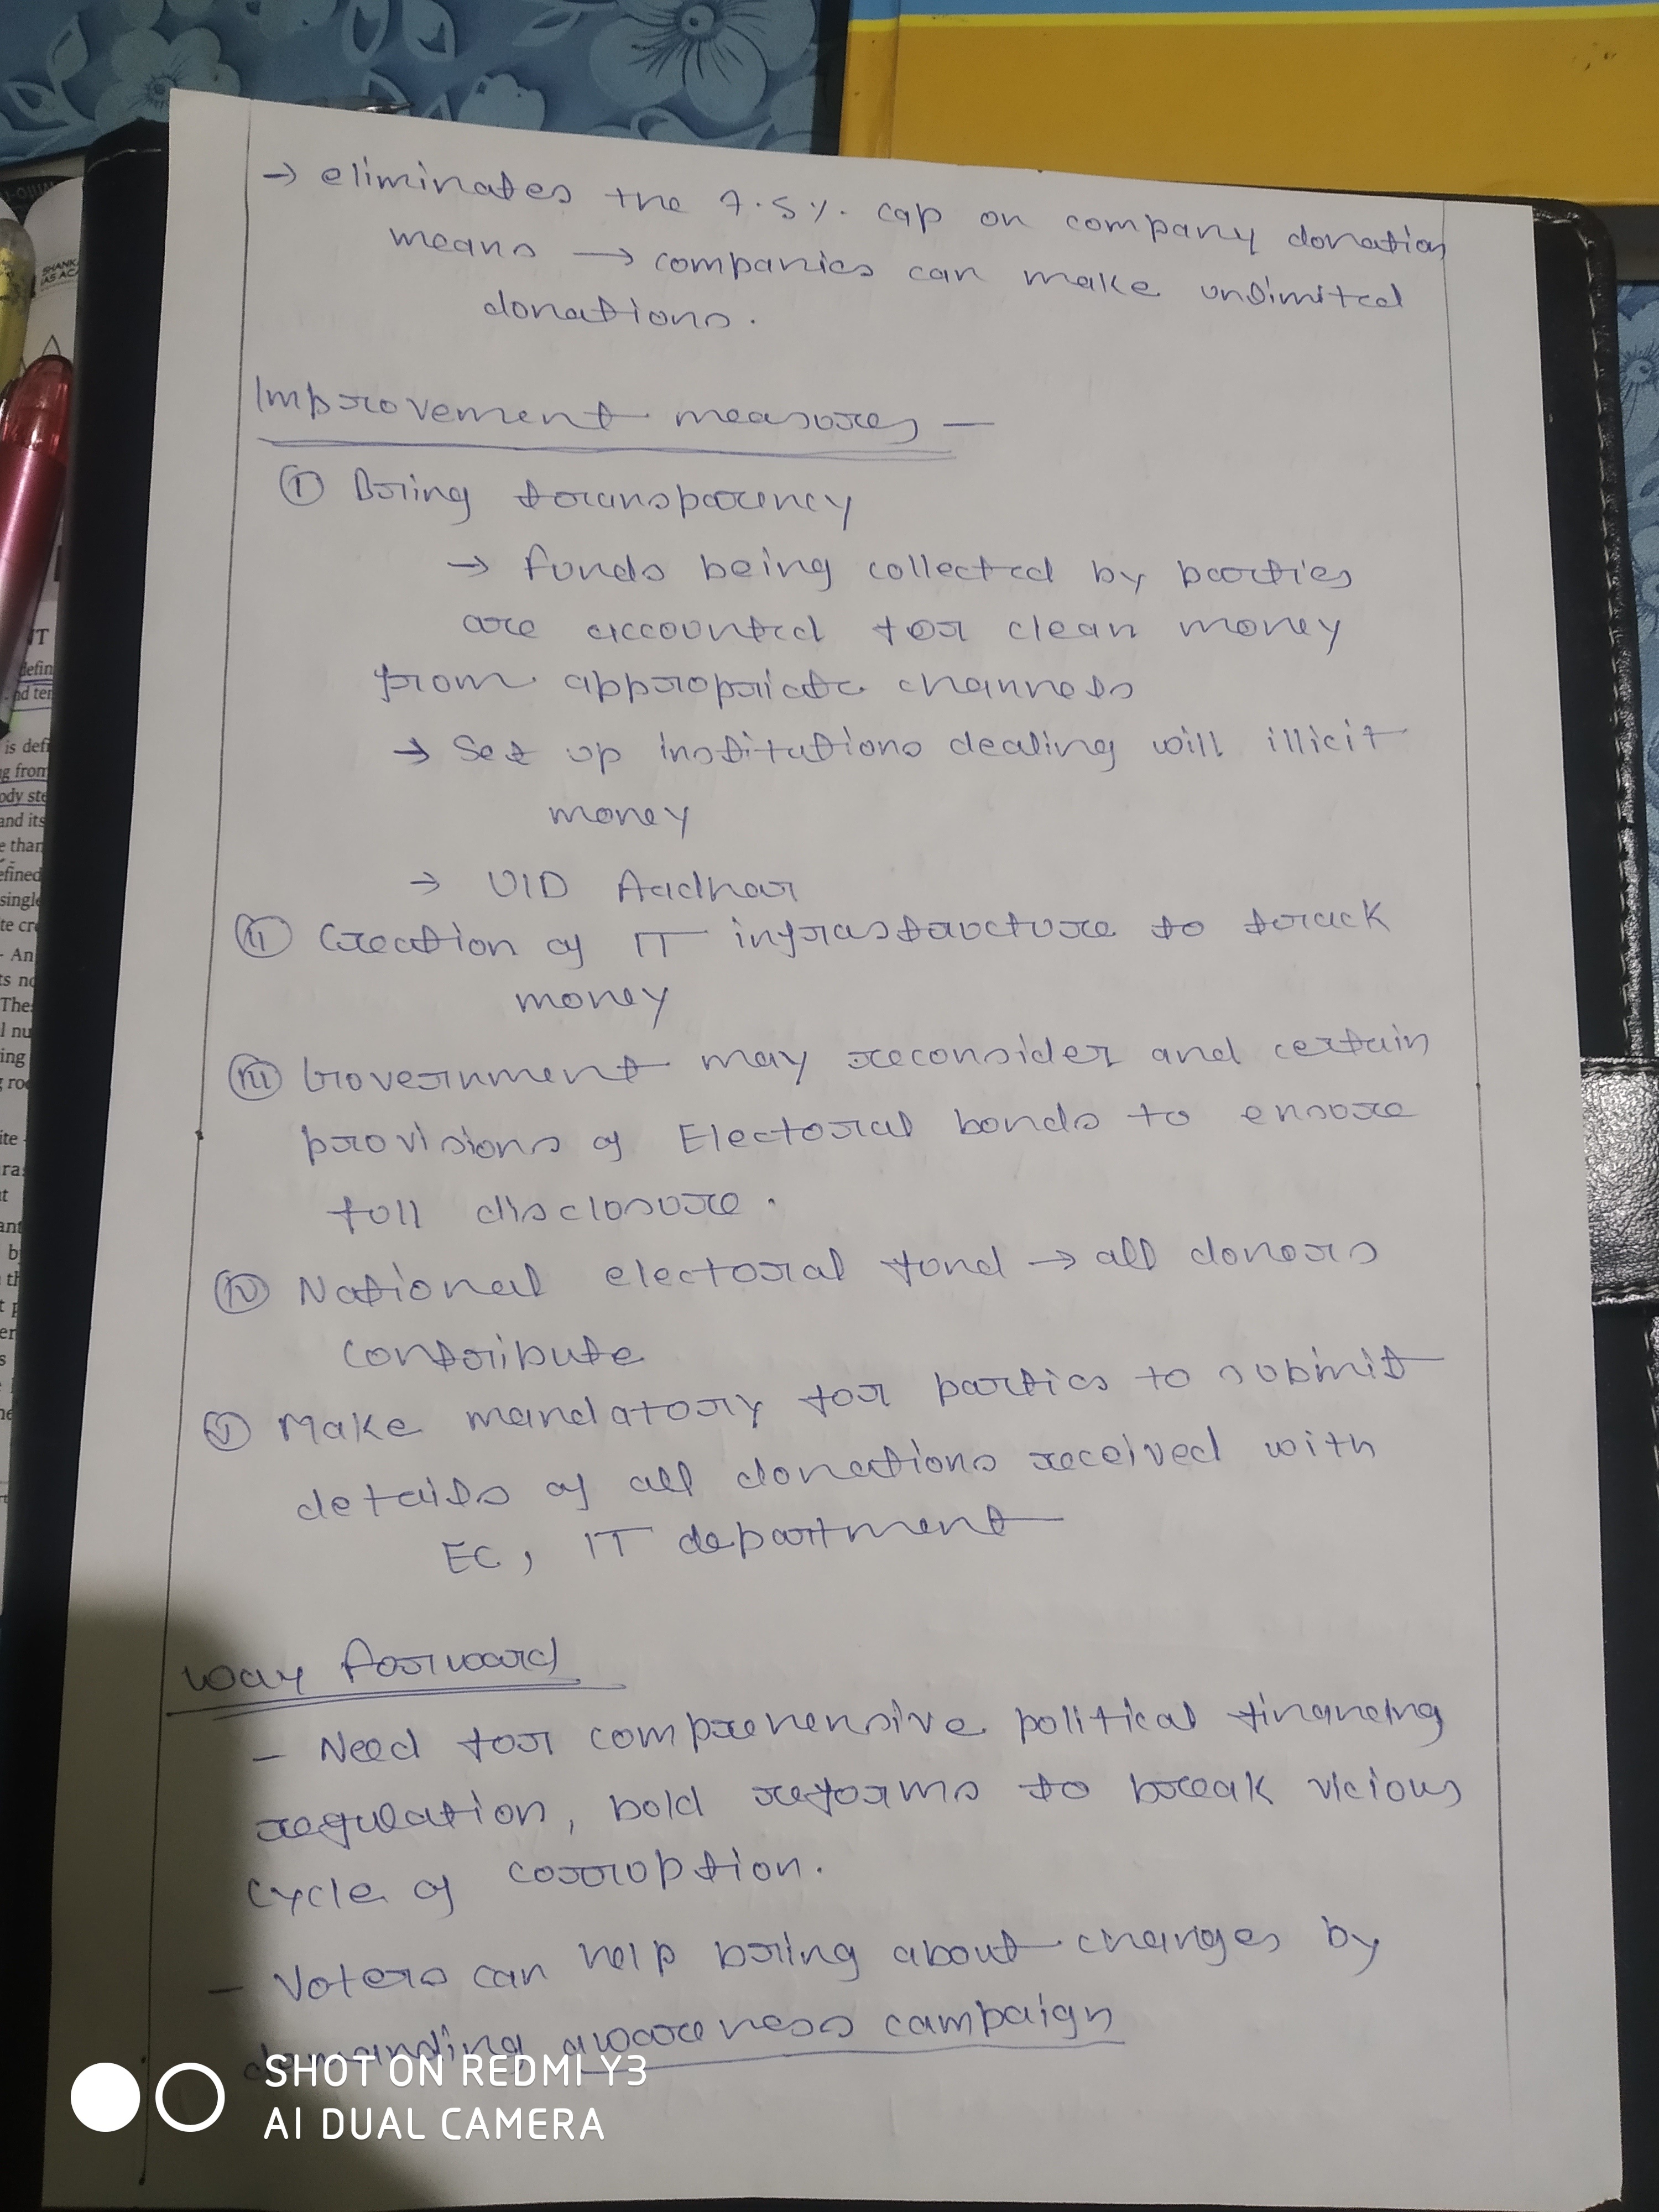 → eliminates the 7.5%. cap on company donation
means → companies can make unlimited
donations.
Improvement measures —
(I) Bring transparency
→ funds being collected by parties
are accounted for clean money
from appropriate channels
→ Set up institutions dealing will illicit
money
→ UID Aadhar
(II) Creation of IT infrastructure to track
money
(III) Government may reconsider and certain
provisions of Electoral bonds to ensure
full disclosure.
(IV) National electoral fund → all donors
contribute
(V) Make mandatory for parties to submit
details of all donations received with
EC, IT department
Way forward
- Need for comprehensive political financing
regulation, bold reforms to break vicious
cycle of corruption.
- Voters can help bring about changes by
demanding awareness campaign
SHOT ON REDMI Y3
AI DUAL CAMERA
SHANK
IAS ACA
NT
defin
nd ter
is defi
g from
ody ste
and its
e than
efined
single
te cre
- An
ts no
The
l nu
ing
roo
ite
ra
t
ant
b
th
t p
er
s